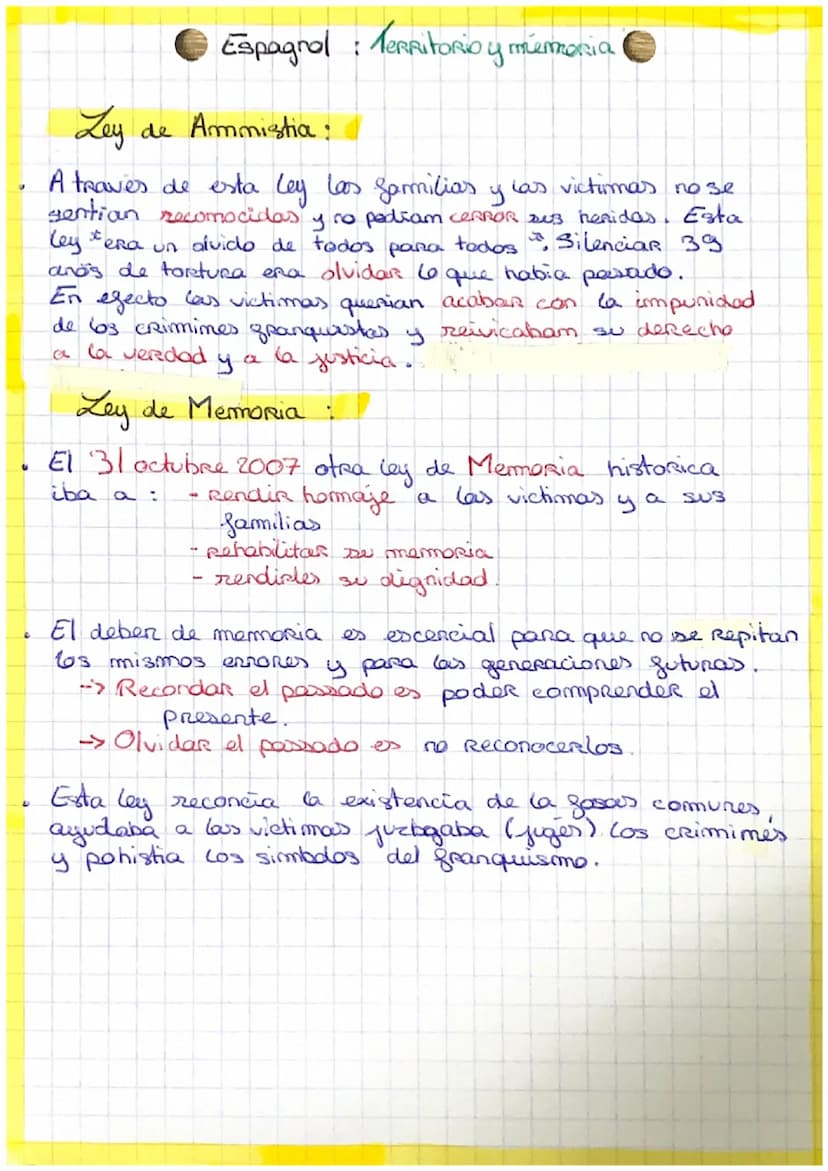 Espagnol : Territorio y miemoria
Ley de Ammistia :
A traves de esta ley las familias y las victimas no se
sentian recomocidas y no podiam cerror sus heridas. Esta
ley "era un olvido de todos para todos", Silenciar 39
anõs de tortura era olvidar lo que habia pasado.
En efecto las victimas querian acabar con la impunidad
de los crimines franquistas y reivicabam su derecho
a la verdad y a la justicia.
Ley de Memoria :
El 31 octubre 2007 otra ley de Memoria historica
iba a : - Rendir homaje a las victimas y a sus
familias
- Rehabilitar su memoria
- rendirles su dignidad.
El deber de memoria es escencial para que no se Repitan
los mismos errores y para las generaciones futuras.
--> Recordar el passado es poder comprender el
presente.
--> Olvidar el passado es no Reconocerlos.
Esta ley reconcia la existencia de la fosas comunes,
ayudaba a las victimas juzbgaba (juger) los crimimes
y pohistia los simbolos del franquismo.